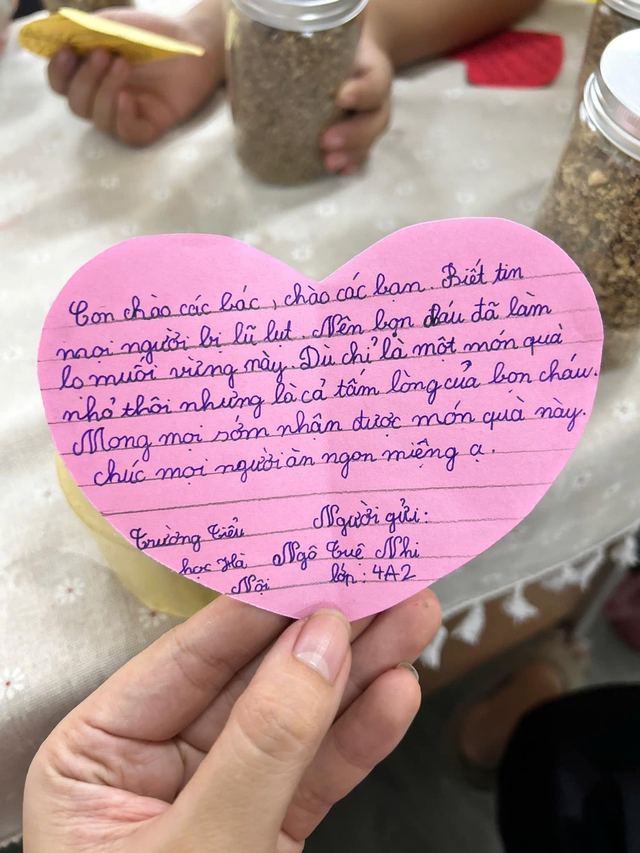 Con chào các bác, chào các bạn. Biết tin
mọi người bị lũ lụt. Nên bọn cháu đã làm
lọ muối vừng này. Dù chỉ là một món quà
nhỏ thôi nhưng là cả tấm lòng của bọn cháu.
Mong mọi sớm nhận được món quà này.
chúc mọi người ăn ngon miệng ạ.
Trường Tiểu Người gửi:
học Hà Ngô Tuệ Nhi
Nội lớp: 4A2